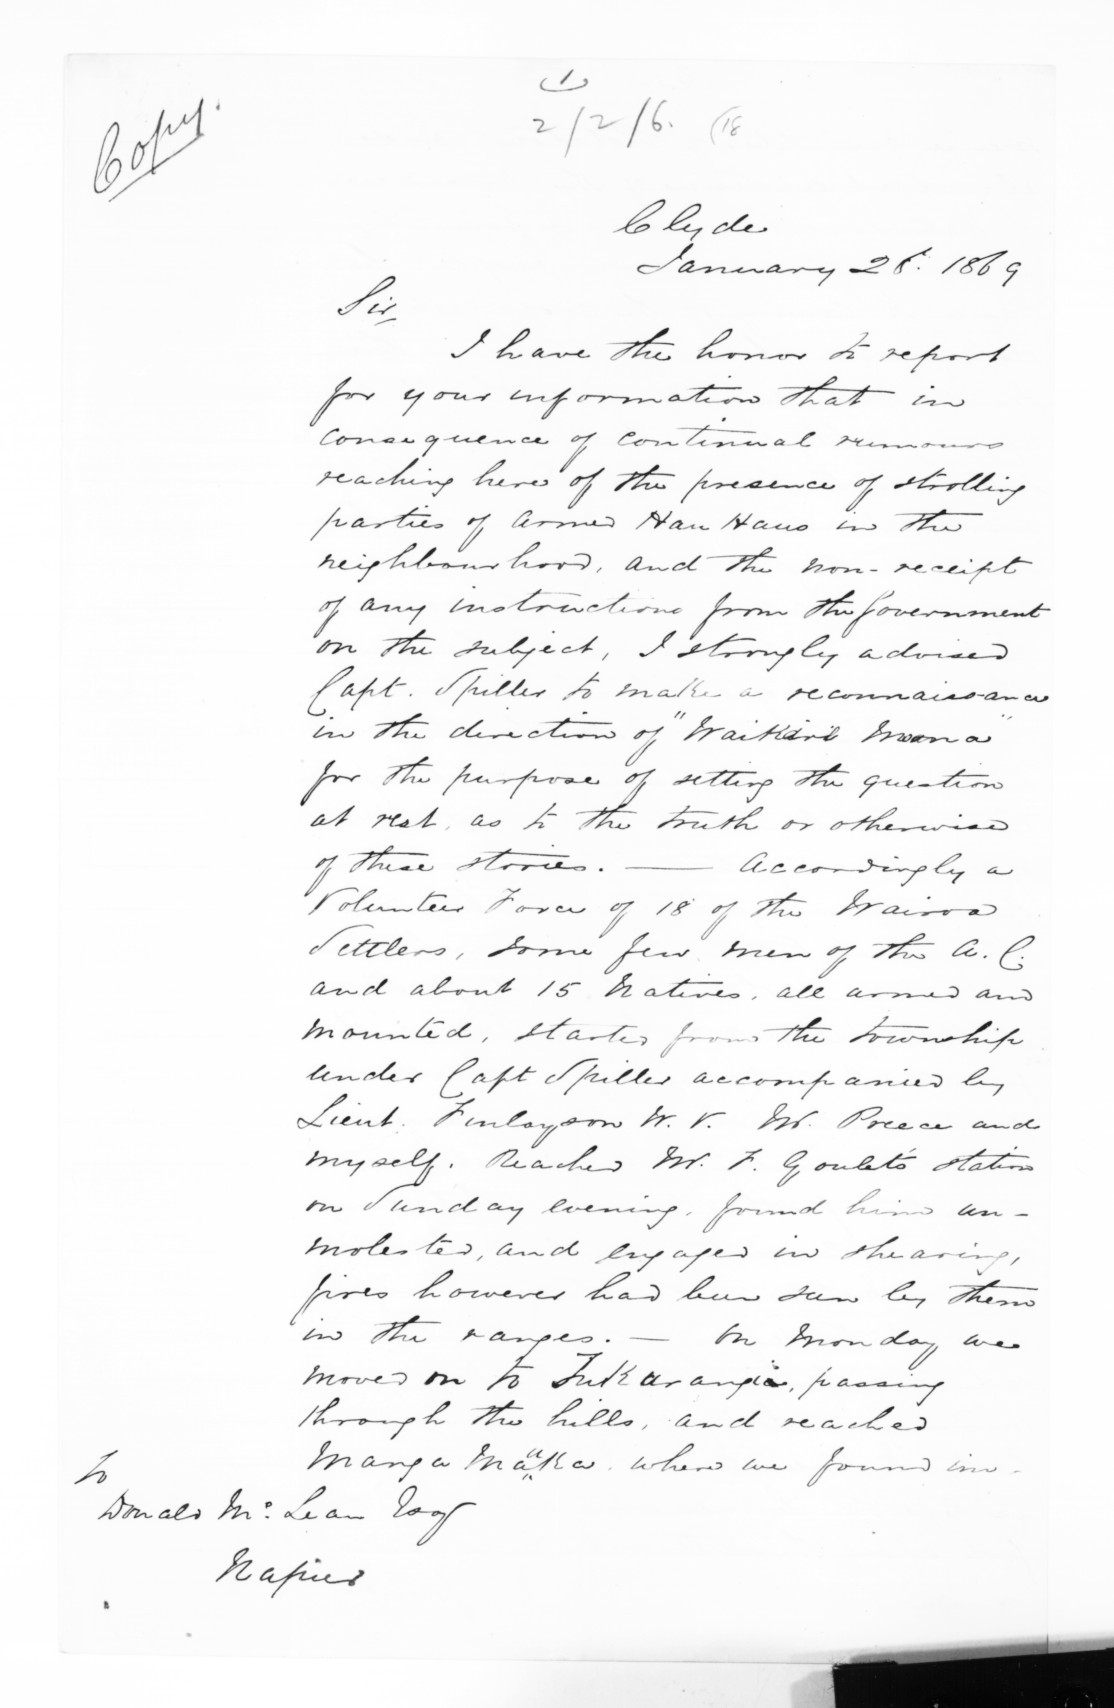 (1)
2/2/6. (18
Copy.
Clyde
January 28. 1869
Sir,
I have the honor to report
for your information that in
consequence of continual rumours
reaching here of the presence of strolling
parties of armed Hau Haus in the
neighbourhood, and the non-receipt
of any instructions from the Government
on the subject, I strongly advised
Capt. Spiller to make a reconnaissance
in the direction of "Waikari Moana"
for the purpose of setting the question
at rest, as to the truth or otherwise
of these stories. — Accordingly a
Volunteer Force of 18 of the Wairoa
Settlers, some few men of the A. C.
and about 15 Natives, all armed and
mounted, started from the township
under Capt Spiller accompanied by
Lieut. Finlayson W. V. Mr. Preece and
myself. Reached Mr. F. Goulet's station
on Sunday evening, found him un-
molested, and engaged in shearing,
fires however had been seen by them
in the ranges. — On Monday we
moved on to Tukurangi, passing
through the hills, and reached
Manga where we found im-
To
Donald Mc. Lean Esq
Napier